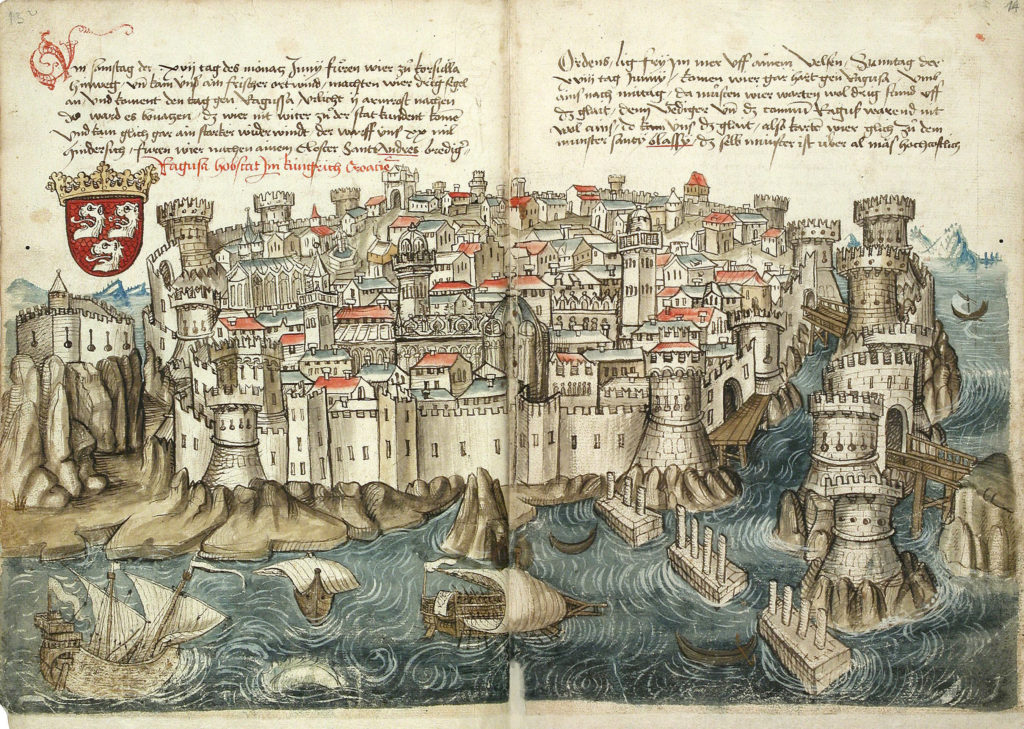 13
14
Am samstag der xvij tag des monatz Juny fůren wier zů korsulla
hinweg uñ kam uns ain frischer ort wind / machten wier drig segel
an / und koment den tag gen Ragussa vilicht ij armrost nachen
Do ward es bonazen / dz wier nit witer zů der stat kundent kome
Und kam glich gar ain starker wider wind der warff uns xxx mil
hindersich / fůren wier nachen ainem Closter Sant Andres bredig
Ragusa hobstat Im kungrich Croacie
Ordens / lig fry im mer uff ainem velsen / Sunntag der
xviij tag Junny / komen wier gar hart gen Ragusa umb
ains nach mitag / da můsten wier warten wol drig stund uff
dz glait / denn Venediger uñ dz comun Ragus warend nit
wol ains / do kam uns dz glait / also karte wier glich zů dem
munster sancti Blassy / dz selb munster ist über al mas hochcostlich